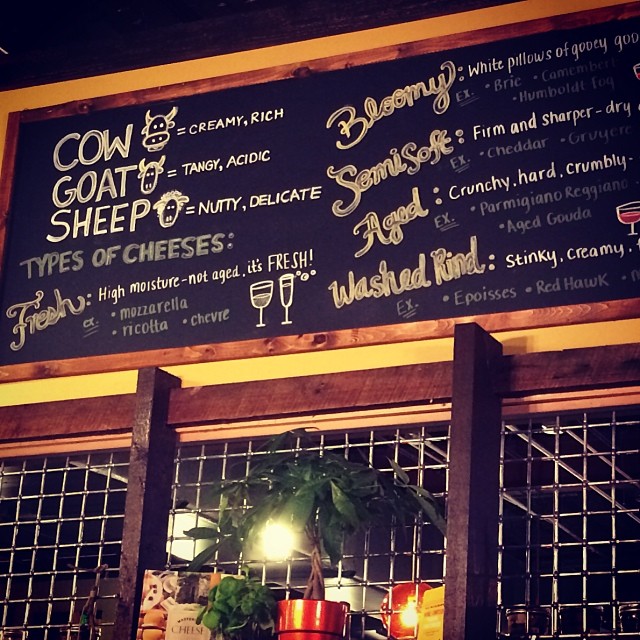 COW = CREAMY, RICH
GOAT = TANGY, ACIDIC
SHEEP = NUTTY, DELICATE
TYPES OF CHEESES:
Fresh: High moisture-not aged, it's FRESH!
ex. • mozzarella
• ricotta • chevre
Bloomy: White pillows of gooey goo
Ex. • Brie • Camembert
• Humboldt Fog
Semi Soft: Firm and sharper-dry
Ex. • Cheddar • Gruyere
Aged: Crunchy, hard, crumbly-
Ex. • Parmigiano Reggiano
• Aged Gouda
Washed Rind: Stinky, creamy,
Ex. • Epoisses • Red Hawk
CHEESE